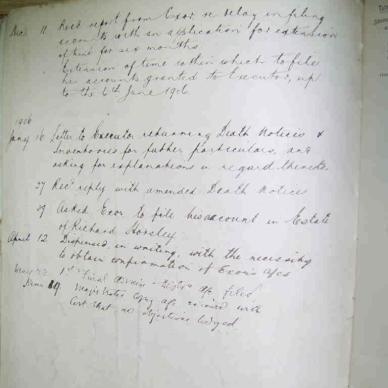 Dec 11 Recd report from Exor re delay in filing
accounts with an application for extension
of time for six months.
Extension of time within which to file
his accounts granted to Executor, up
to the 6th June 1906
1906
Jany 16 Letter to Executor returning Death Notices &
Inventories for further particulars, and
asking for explanations in regard thereto.
27 Recd reply with amended Death Notices
29 Asked Exor to file his account in Estate
of Richard Horsley
April 12 Dispensed, in writing, with the necessity
to obtain confirmation of Exor's a/cs
1st Final a/c filed
June 19 Magistrates Copy a/c received with
Cert that no objections lodged